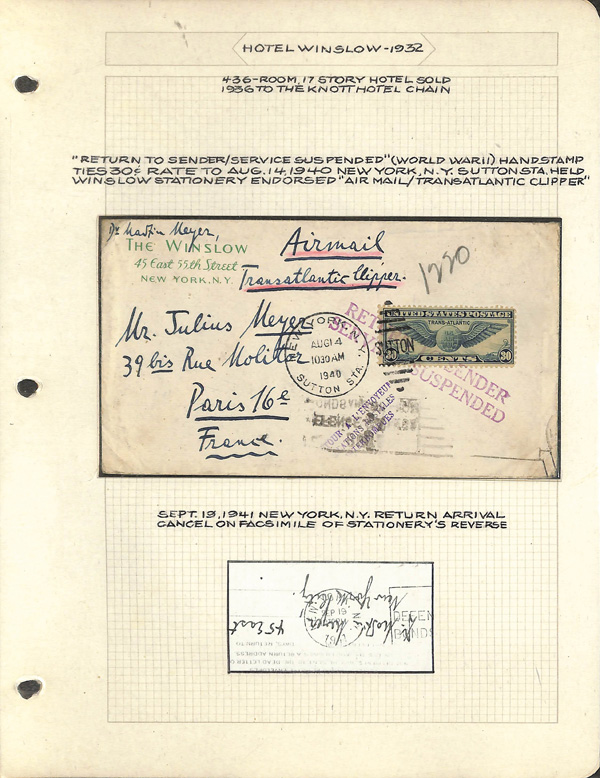 HOTEL WINSLOW-1932
436-ROOM, 17 STORY HOTEL SOLD
1936 TO THE KNOTT HOTEL CHAIN
"RETURN TO SENDER/SERVICE SUSPENDED" (WORLD WAR II) HANDSTAMP
TIES 30¢ RATE TO AUG. 14, 1940 NEW YORK, N.Y. SUTTON STA. HELD
WINSLOW STATIONERY ENDORSED "AIR MAIL/TRANSATLANTIC CLIPPER"
Dr Martin Meyer,
THE WINSLOW
45 East 55th Street
NEW YORK, N.Y.
Airmail
Transatlantic Clipper.
1220
Mr. Julius Meyer
39 bis Rue Molitor
Paris 16e
France.
NEW YORK, N.Y.
AUG 14
1030 AM
1940
SUTTON STA.
SUTTON
UNITED STATES POSTAGE
TRANS-ATLANTIC
30 CENTS 30
RETURN TO SENDER
SERVICE SUSPENDED
RETOUR A L'ENVOYEUR
SEPT. 19, 1941 NEW YORK, N.Y. RETURN ARRIVAL
CANCEL ON FACSIMILE OF STATIONERY'S REVERSE
45 East
Meyer
New York City.
SEP 19
DEFEN
BONDS